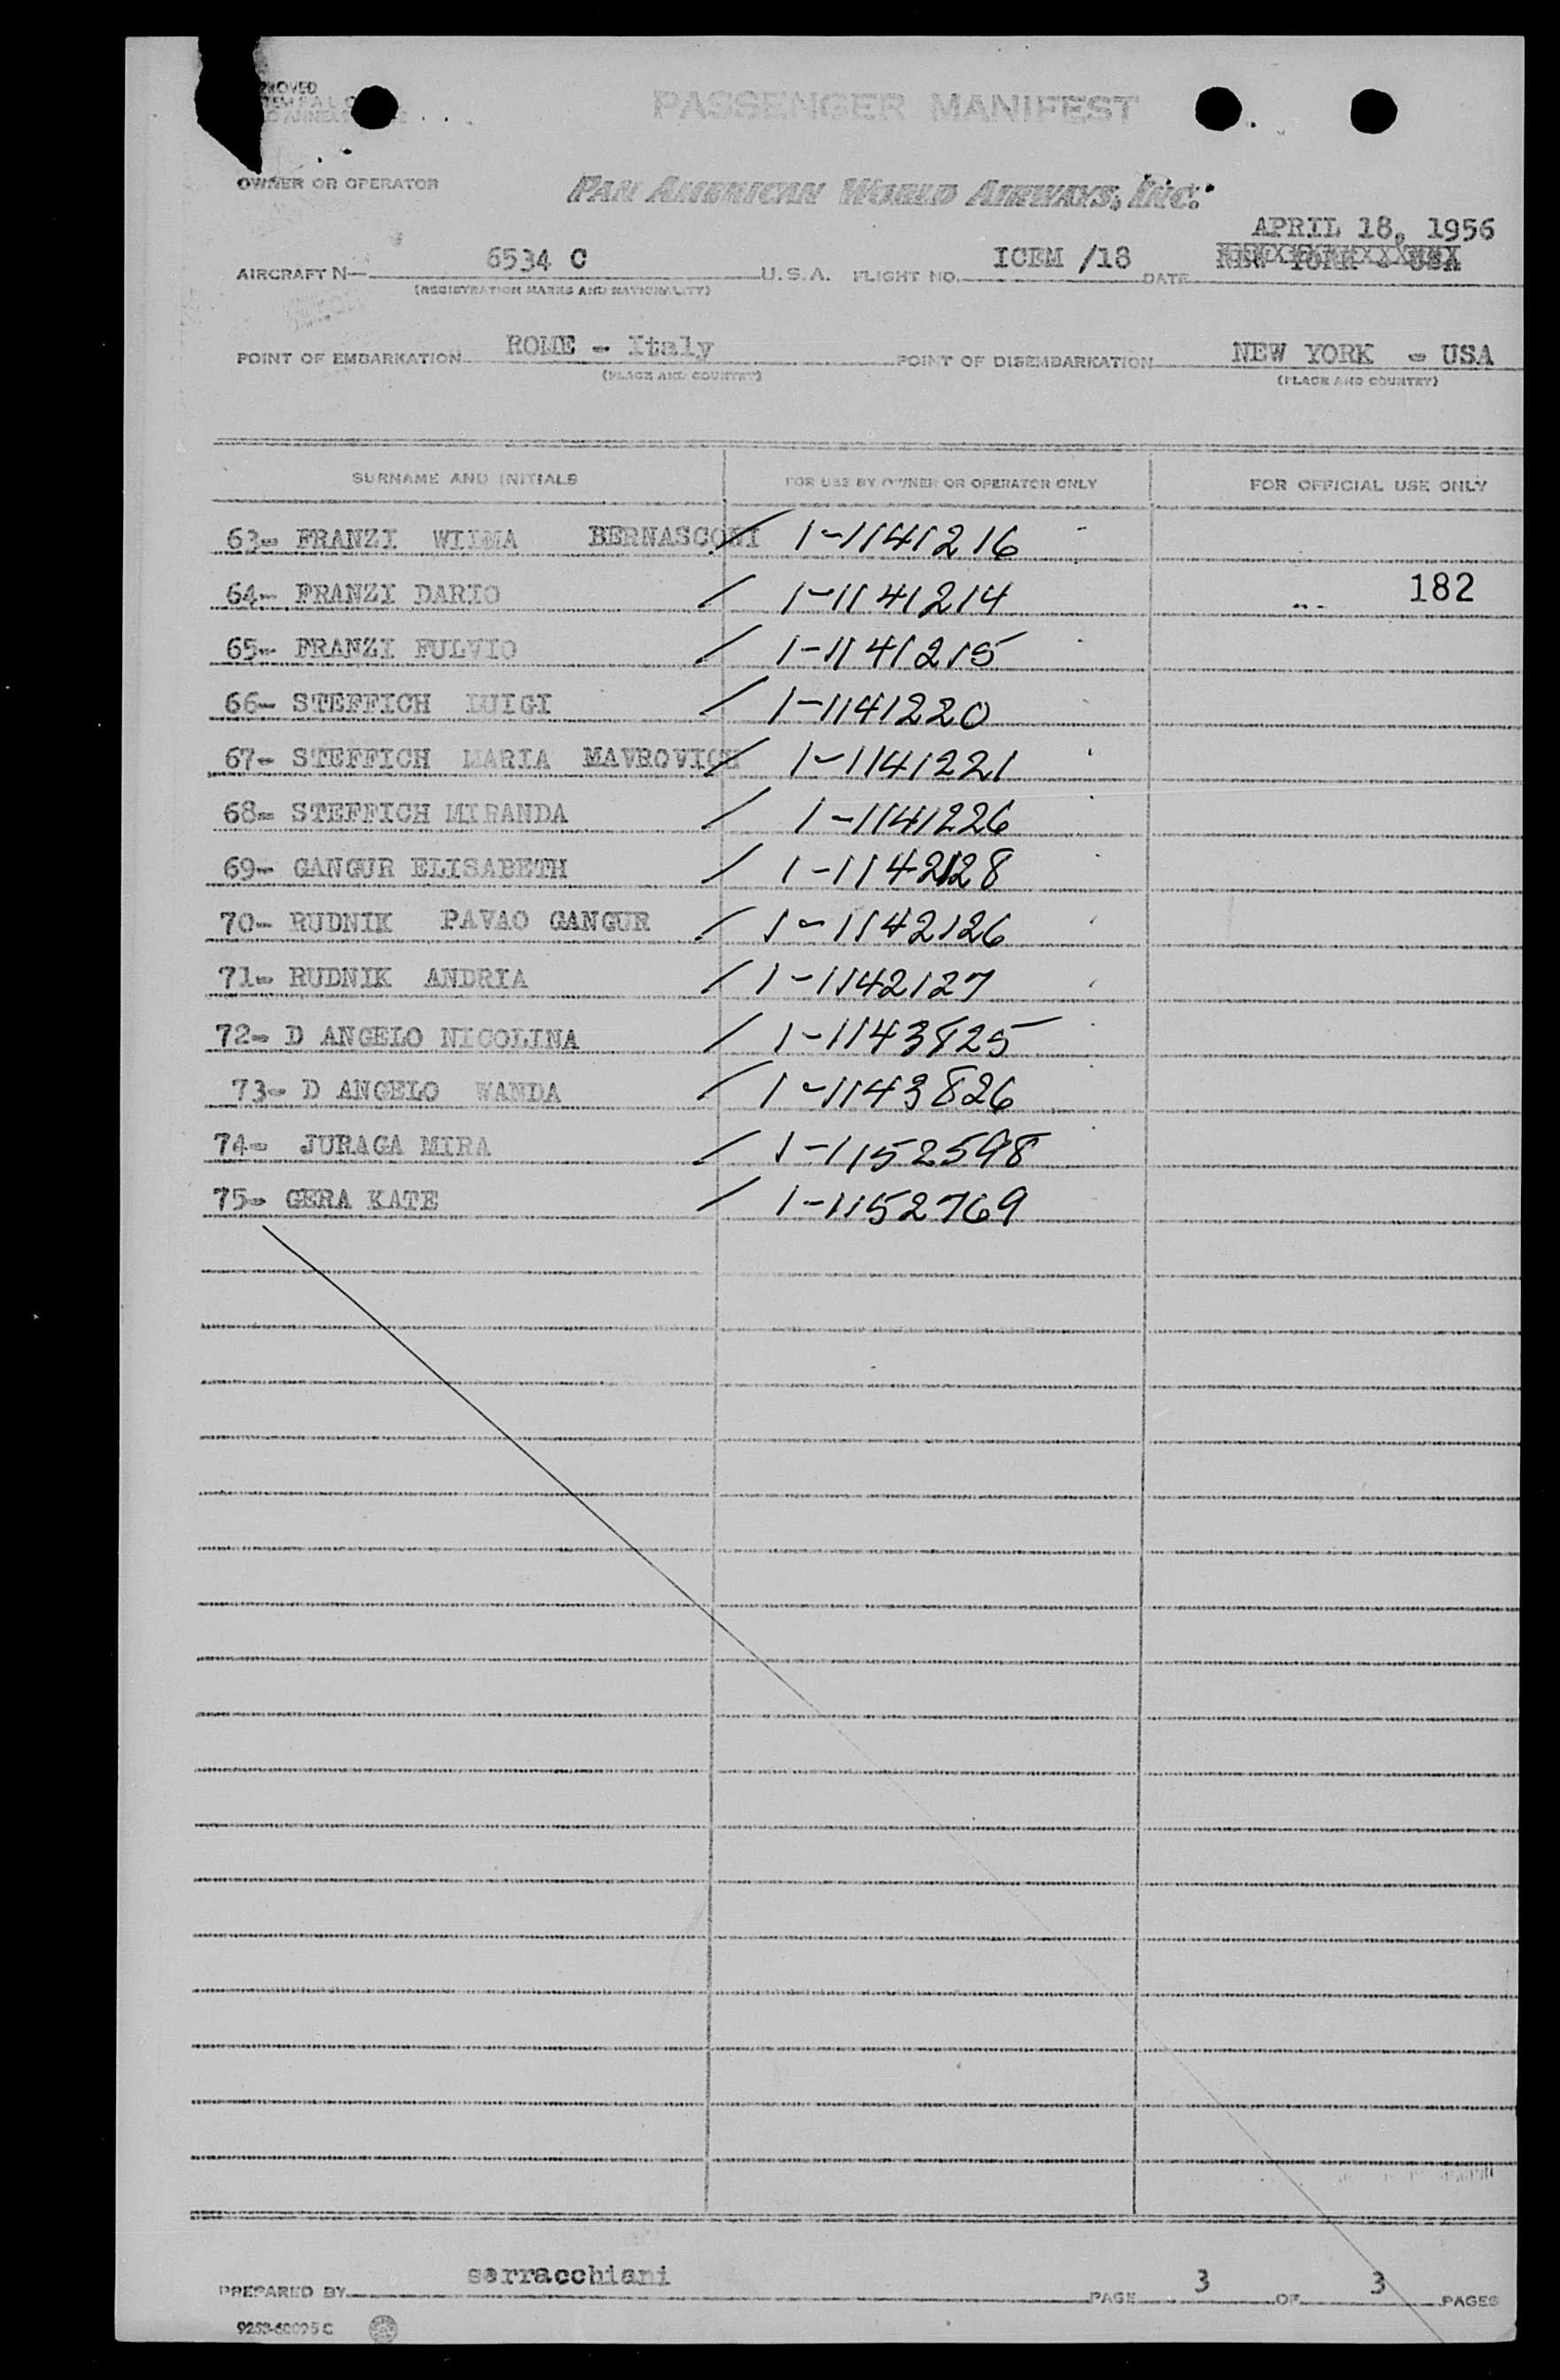 PASSENGER MANIFEST
OWNER OR OPERATOR
PAN AMERICAN WORLD AIRWAYS, INC.
APRIL 18, 1956
AIRCRAFT N— 6534 C U.S.A. FLIGHT NO. ICEM /18 DATE NEW YORK - USA
(REGISTRATION MARKS AND NATIONALITY)
POINT OF EMBARKATION ROME - Italy POINT OF DISEMBARKATION NEW YORK - USA
(PLACE AND COUNTRY) (PLACE AND COUNTRY)
SURNAME AND INITIALS FOR USE BY OWNER OR OPERATOR ONLY FOR OFFICIAL USE ONLY
63- FRANZI WILMA BERNASCONI / 1-1141216
64- FRANZI DARIO / 1-1141214 182
65- FRANZI FULVIO / 1-1141215
66- STEFFICH LUIGI / 1-1141220
67- STEFFICH MARIA MAVROVICH / 1-1141221
68- STEFFICH MIRANDA / 1-1141226
69- GANGUR ELISABETH / 1-1142128
70- RUDNIK PAVAO GANGUR / 1-1142126
71- RUDNIK ANDRIA / 1-1142127
72- D ANGELO NICOLINA / 1-1143825
73- D ANGELO WANDA / 1-1143826
74- JURAGA MIRA / 1-1152598
75- GERA KATE / 1-1152769
PREPARED BY serracchiani PAGE 3 OF 3 PAGES